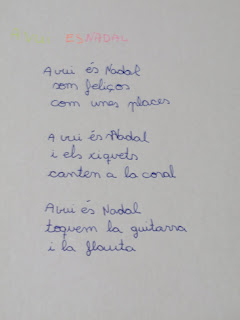 Avui ESNADAL
Avui és Nadal
som feliços
com unes places
Avui és Nadal
i els xiquets
canten a la coral
Avui és Nadal
toquem la guitarra
i la flauta